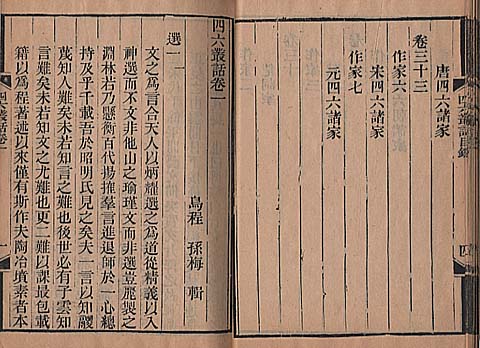 唐四六諸家
卷三十三
作家六
宋四六諸家
作家七
元四六諸家
四六叢話目錄 四
四六叢話卷一
烏程 孫梅 輯
選一
文之為言合天人以炳耀選之為道從精義以入
神選而不文非他山之瑜瑾文而非選豈麗製之
淵林若乃懸衡百代揚搉羣言進退師於一心總
持及乎千載吾於昭明氏見之矣夫一言以知鬷
蔑知人難矣未若知言之難也後世必有子雲知
言難矣未若知文之尤難也更二難以課最包載
籍以為程著述以來僅有斯作夫陶冶墳素者本
四六叢話卷一